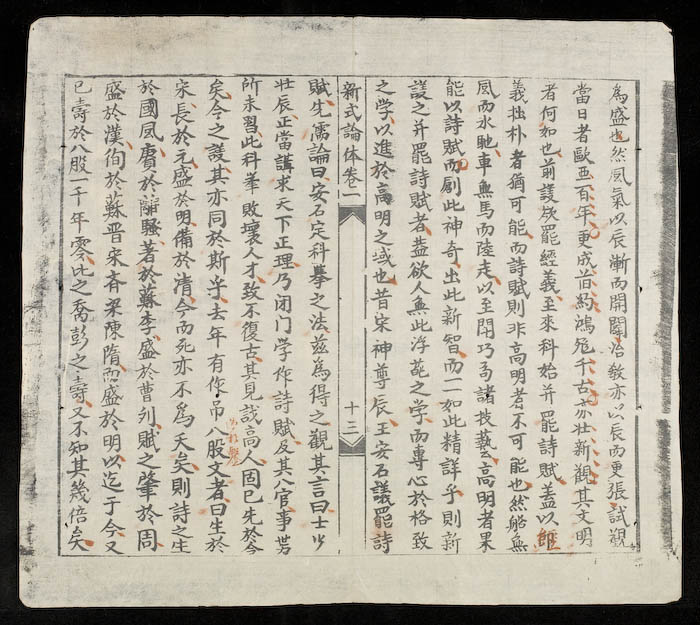 為盛也然風氣以辰漸而開闢治教亦以辰而更張試觀
當日者歐西百年更成首約鴻
千古亦壯新觀其文明
者何如也前議欲罷經義至來科始并罷詩賦蓋以經
義拙朴者猶可能而詩賦則非高明者不可能也然船無
風而水馳車無馬而陸走以至開巧為諸技藝高明者果
能以詩賦而創此神奇出此新智而一一如此精詳乎則新
議之并罷詩賦者蓋欲人無此浮靡之学而專心於格致
之学以進於高明之域也昔宋神尊辰王安石議罷詩
新式論体卷一
十三
賦先儒論曰安石定科舉之法茲為得之觀其言曰士少
壯辰正當講求天下正理乃闭门学作詩賦及其八官事世务
所未習此科举敗壞人才致不復古其見識高人固已先於今
矣今之議其亦同於斯乎去年有作吊八股文者曰生於
宋長於元盛於明備於清今而死亦不為夭矣則詩之生
於國風賡於離騷著於蘇李盛於曹刘賦之肇於周
盛於漢徇於蘇晋宋斉梁陳隋而盛於明以迄于今又
已壽於八股一千年零比之喬彭之壽又不知其幾倍矣